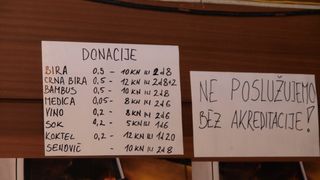 DONACIJE
BIRA 0,5 - 10 KN ILI 2d8
CRNA BIRA 0,5 - 12 KN ILI 2d8+2
BAMBUS 0,5 - 10 KN ILI 2d8
MEDICA 0,05 - 8 KN ILI 2d6
VINO 0,2 - 8 KN ILI 2d6
SOK 0,2 - 5 KN ILI 1d6
KOKTEL 0,2 - 12 KN ILI 1d20
SENDVIČ - 10 KN ILI 2d8
NE POSLUŽUJEMO
BEZ AKREDITACIJE!